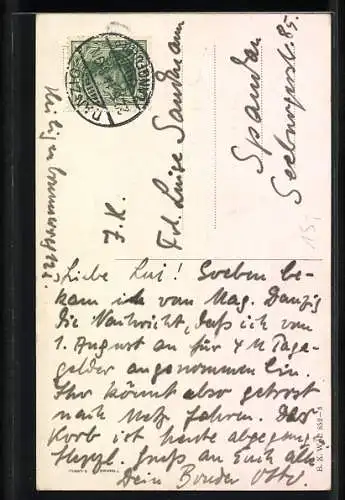 DANZIG
J. H.
Frl. Luise Sandmann
Spandau
Seeburgerstr. 85.
Heiligenbrunnerweg
Liebe Lui! Soeben be-
kam ich vom Mag. Danzig
die Nachricht, daß ich vom
1. August an für 4 M Tage-
gelder angenommen bin.
Ihr könnt also getrost
nach Metz fahren. Der
Korb ist heute abgegangen
Herzl. Gruß an Euch alle
Dein Bruder Otto.
B. K. W. I. 859-3